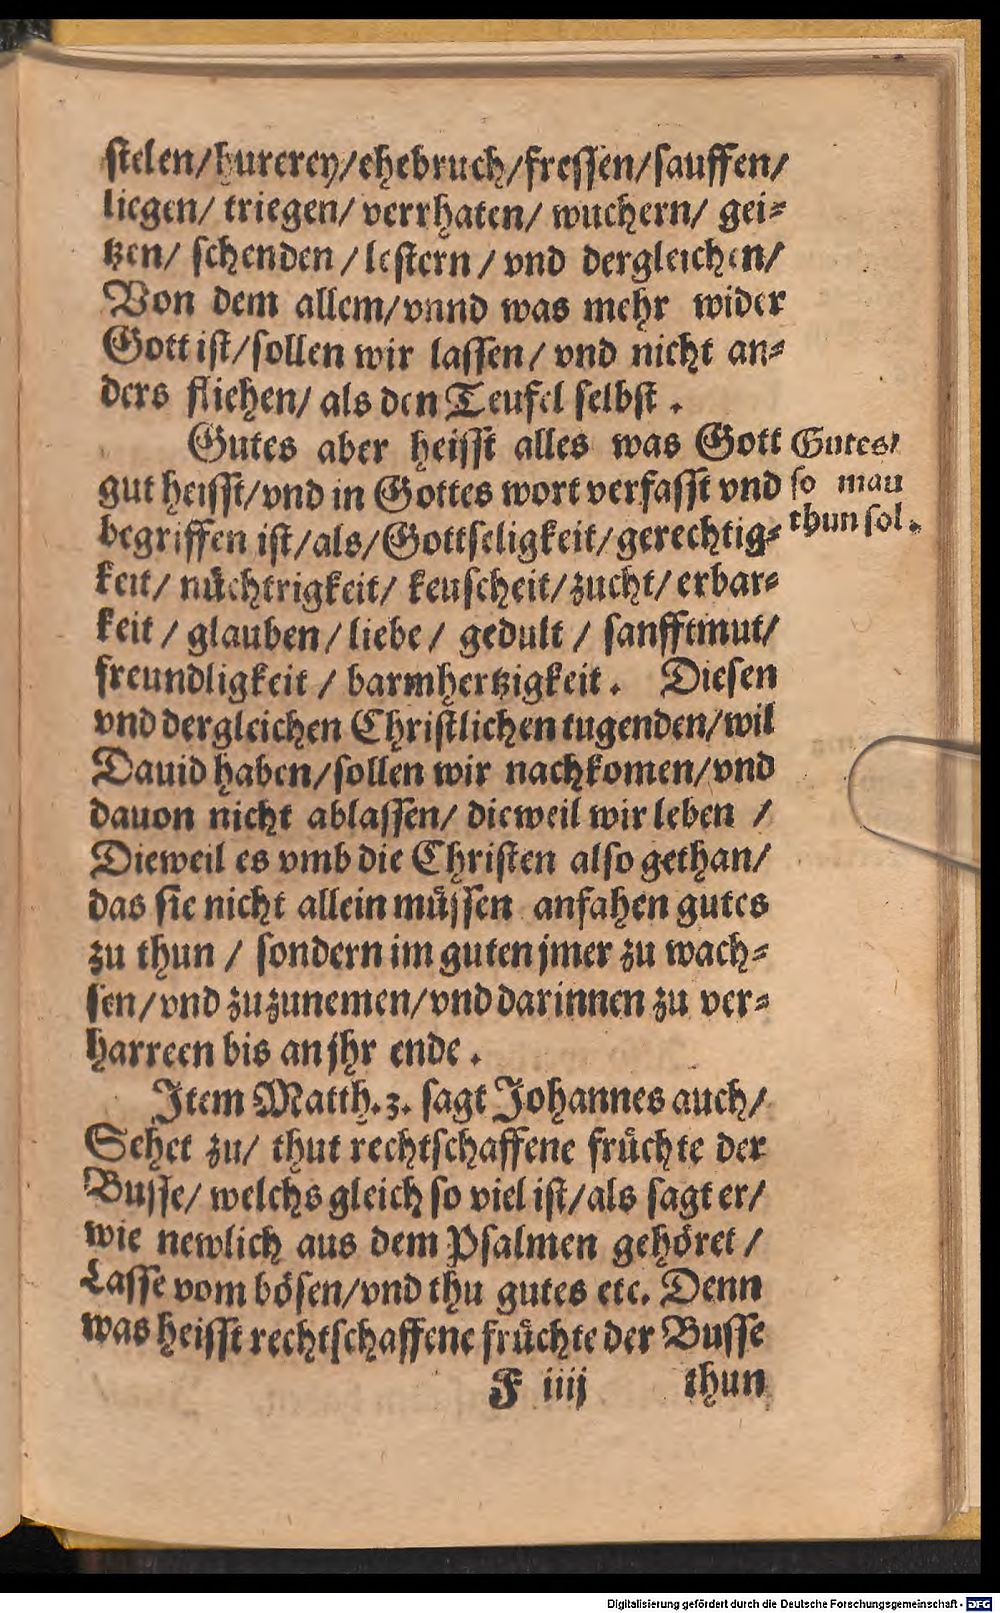 stelen/hurerey/ehebruch/fressen/sauffen/
liegen/ triegen/ verrhaten/ wuchern/ gei⸗
tzen/ schenden / lestern / vnd dergleichen/
Von dem allem/vnnd was mehr wider
Gott ist/sollen wir lassen/ vnd nicht an⸗
ders fliehen/ als den Teufel selbst .
Gutes aber heisst alles was Gott
gut heisst/vnd in Gottes wort verfasst vnd
begriffen ist/als/Gottseligkeit/gerechtig⸗
keit/ nüchtrigkeit/ keuscheit/zucht/ erbar⸗
keit / glauben / liebe / gedult / sanfftmut/
freundligkeit / barmhertzigkeit . Diesen
vnd dergleichen Christlichen tugenden/wil
Dauid haben/sollen wir nachkomen/vnd
dauon nicht ablassen/ dieweil wir leben /
Dieweil es vmb die Christen also gethan/
das sie nicht allein müssen anfahen gutes
zu thun / sondern im guten jmer zu wach⸗
sen/vnd zuzunemen/vnd darinnen zu ver⸗
harreen bis an jhr ende .
Item Matth. 3. sagt Johannes auch/
Sehet zu/ thut rechtschaffene früchte der
Busse/ welchs gleich so viel ist/als sagt er/
wie newlich aus dem Psalmen gehöret /
Lasse vom bösen/vnd thu gutes etc. Denn
was heisst rechtschaffene früchte der Busse
F iiij thun
Gutes/
so man
thun sol .
Digitalisierung gefördert durch die Deutsche Forschungsgemeinschaft - DFG